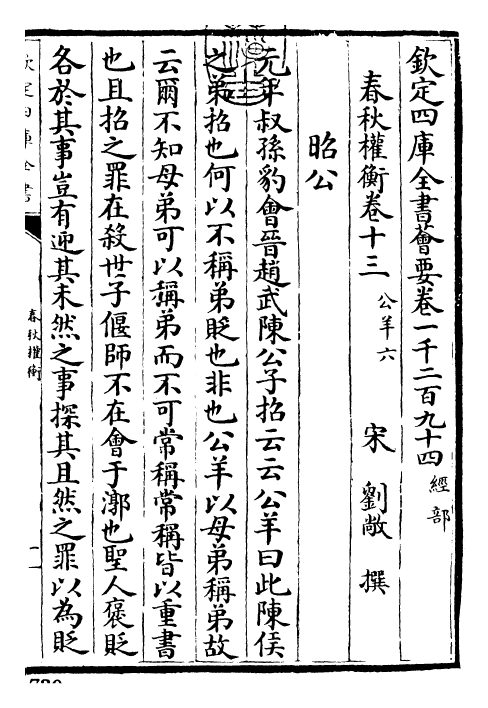 欽定四庫全書薈要卷一千二百九十四 經部
春秋權衡卷十三 公羊六 宋 劉敞 撰
昭公
元年叔孫豹會晉趙武陳公子招云云公羊曰此陳侯
之弟招也何以不稱弟貶也非也公羊以母弟稱弟故
云爾不知母弟可以稱弟而不可常稱常稱皆以重書
也且招之罪在殺世子偃師不在會于漷也聖人褒貶
各於其事豈有迎其未然之事探其且然之罪以為貶
欽定四庫全書
春秋權衡
一